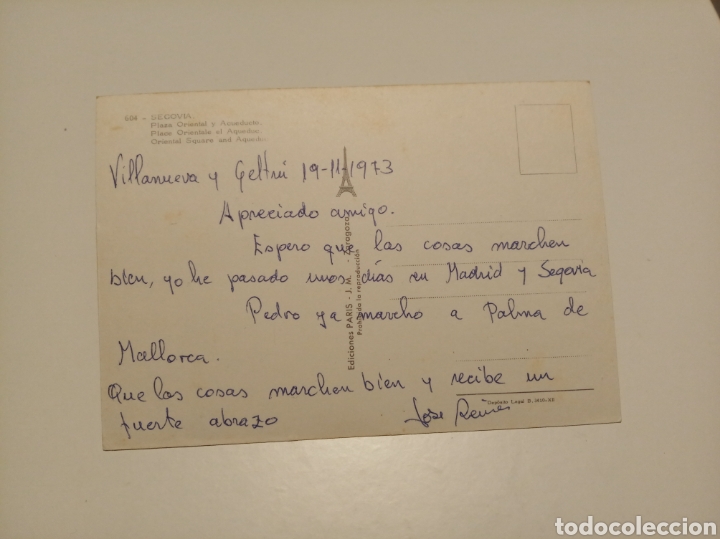 604 - SEGOVIA
Plaza Oriental y Acueducto.
Place Orientale et Aqueduc.
Oriental Square and Aqueduc.
Villanueva y Geltrú 19-11-1973
Apreciado amigo.
Espero que las cosas marchen
bien, yo he pasado unos días en Madrid y Segovia
Pedro ya marcho a Palma de
Mallorca.
Que las cosas marchen bien y recibe un
fuerte abrazo
José
Ediciones PARIS - J. M. - Zaragoza
Prohibida la reproducción
Depósito Legal B.
todocoleccion